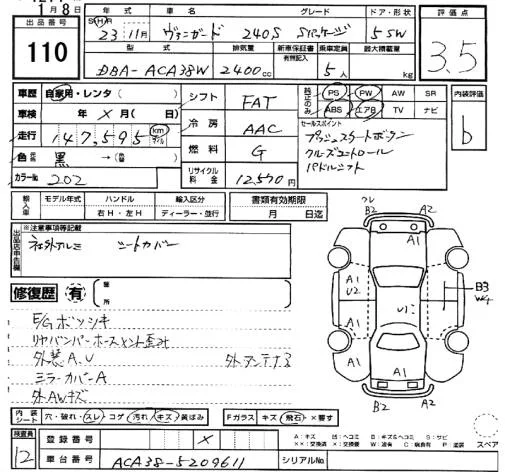 1月8日
出品番号 110
年式 車名 グレード ドア・形状 評価点
S H R 23 11月 ヴァンガード 240S Sパッケージ 5 SW 3.5
型式 排気量 新車保証書 乗車定員 最大積載量
有無記入
DBA-ACA38W 2400cc 5人 kg
車歴 自家用・レンタ( )
車検 年 × 月( 日)
走行 147,595 km マイル
色 黒 →( )
カラーNo 202
シフト FAT
冷房 AAC
燃料 G
リサイクル料金 12,570円
PS PW AW SR
ABS エアB TV ナビ
内装評価 b
セールスポイント
プッシュスタートボタン
クルーズコントロール
パドルシフト
輸入車 モデル年式 ハンドル 輸入区分 書類有効期限
年 右H・左H ディーラー・並行 月 日迄
※注意事項等記載
社外アルミ シートカバー
修復歴 有 箇所
E/Gボツシキ
リヤバンパーホースメント歪み
外装A.U 外アンテナ3
ミラーカバーA
外AWキズ
B2 A2
A1
A1 U2
A1
A1
B3
B2 A2
内装シート 穴・破れ・スレ コゲ 汚れ キズ 黄ばみ Fガラス キズ 飛石 ×要す
A：キズ U：ヘコミ B：キズ&ヘコミ S：サビ
××：交換済 ×：要交換 W：波有 C：腐食有 P：塗装 スペア
検査員 12
登録番号 ×
車台番号 ACA38-5209611 シリアルNo